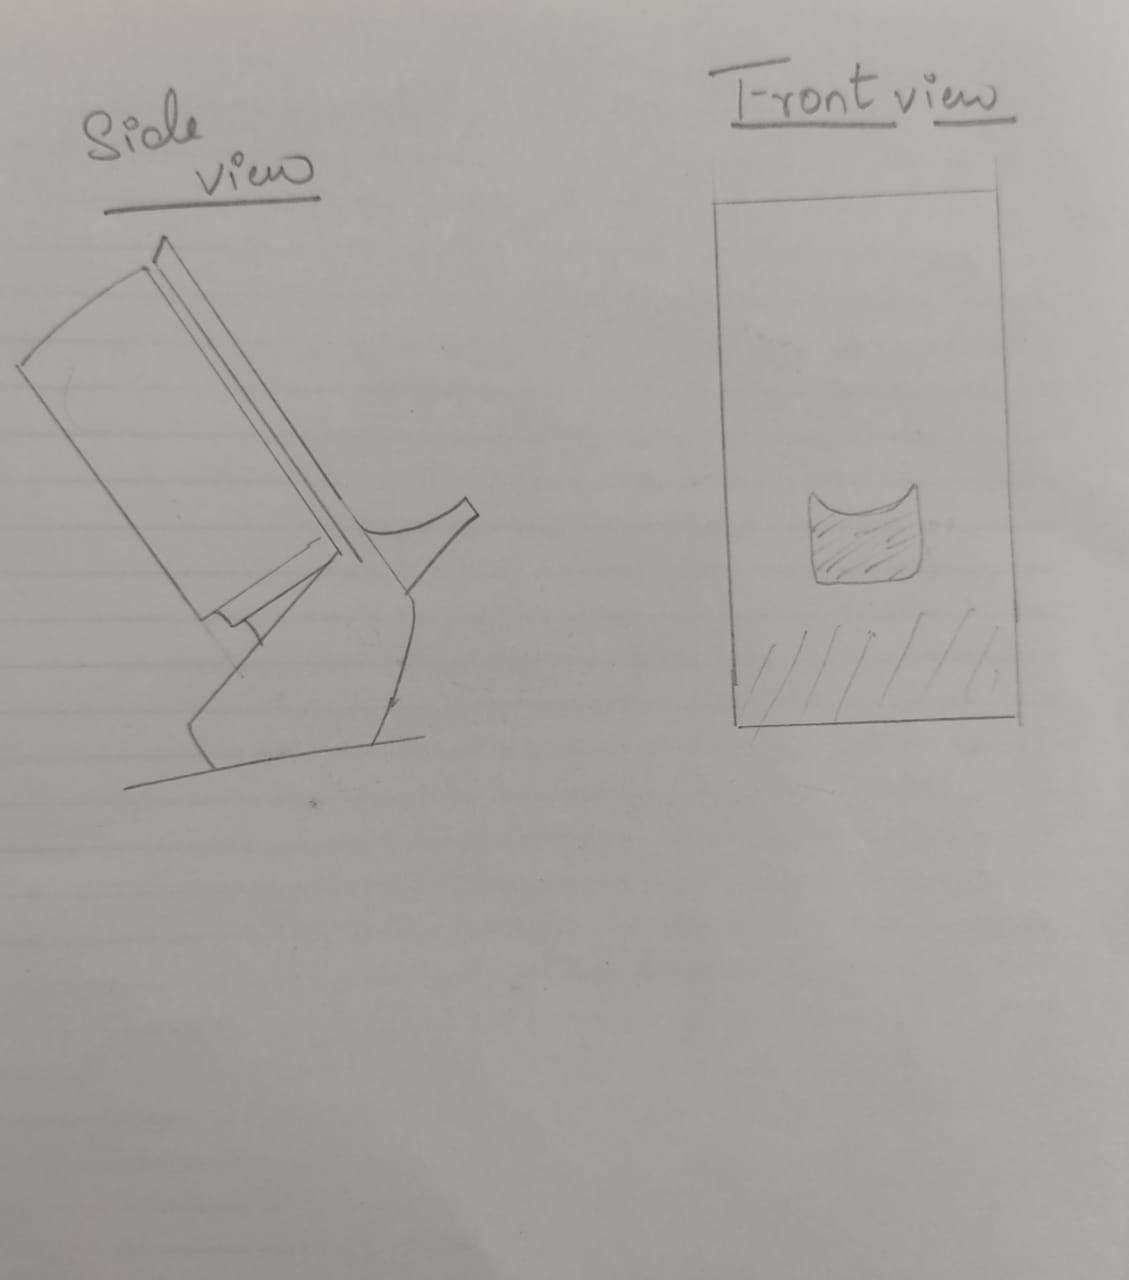 Side
view
Front view